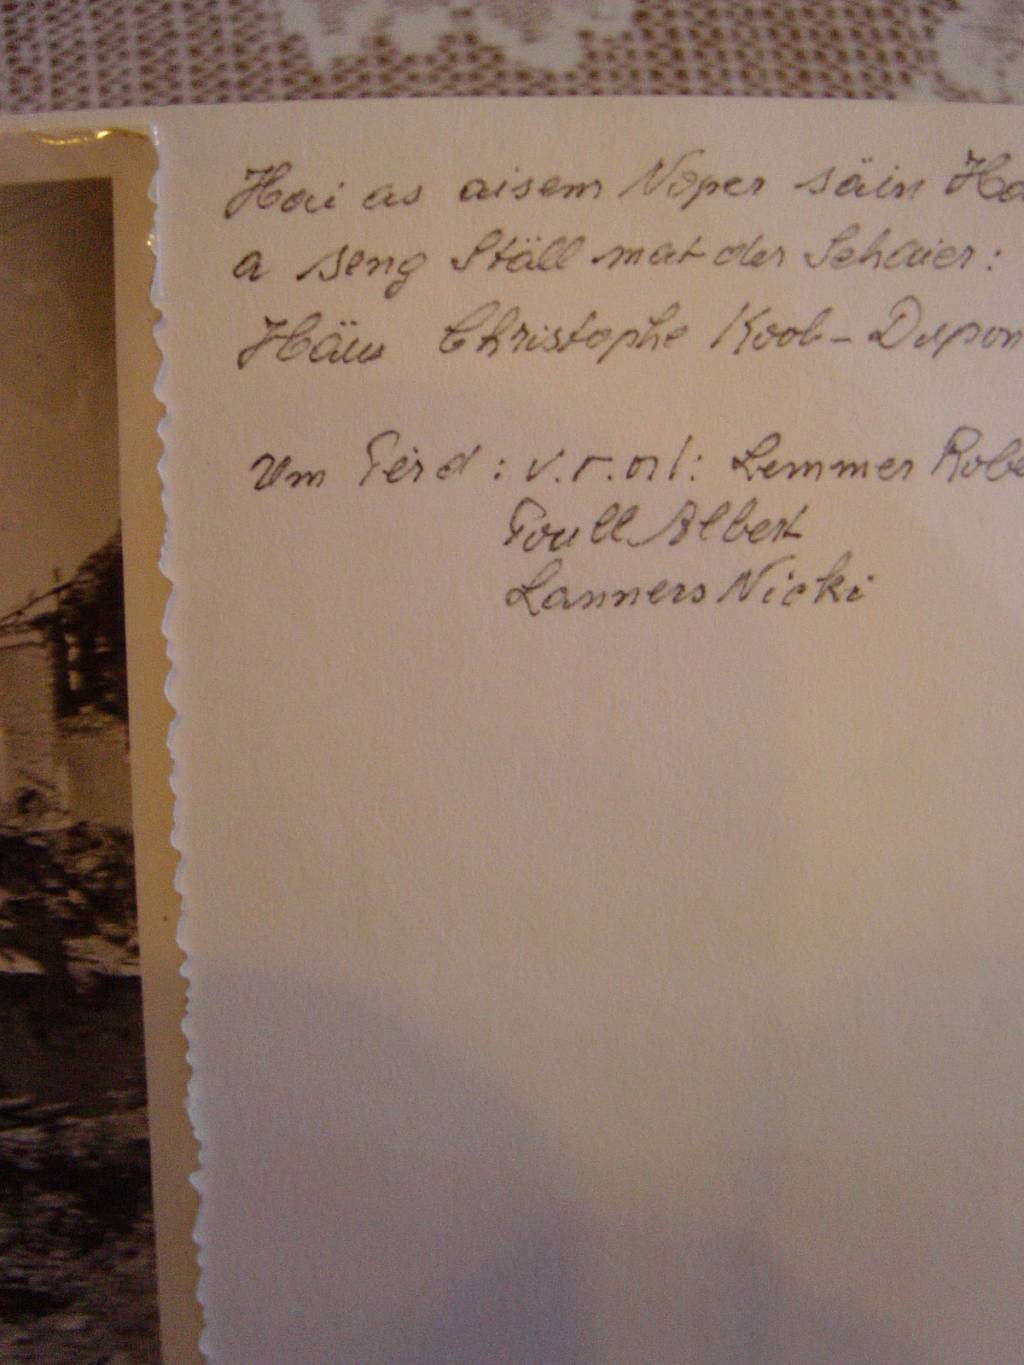 Hai as aisem Noper säin Ha
a seng Ställ mat der Schaier:
Häus Christophe Koob-Dupon
Um Ferd: v.r.n.l: Lemmer Robe
Foull Albert
Lanners Nicki